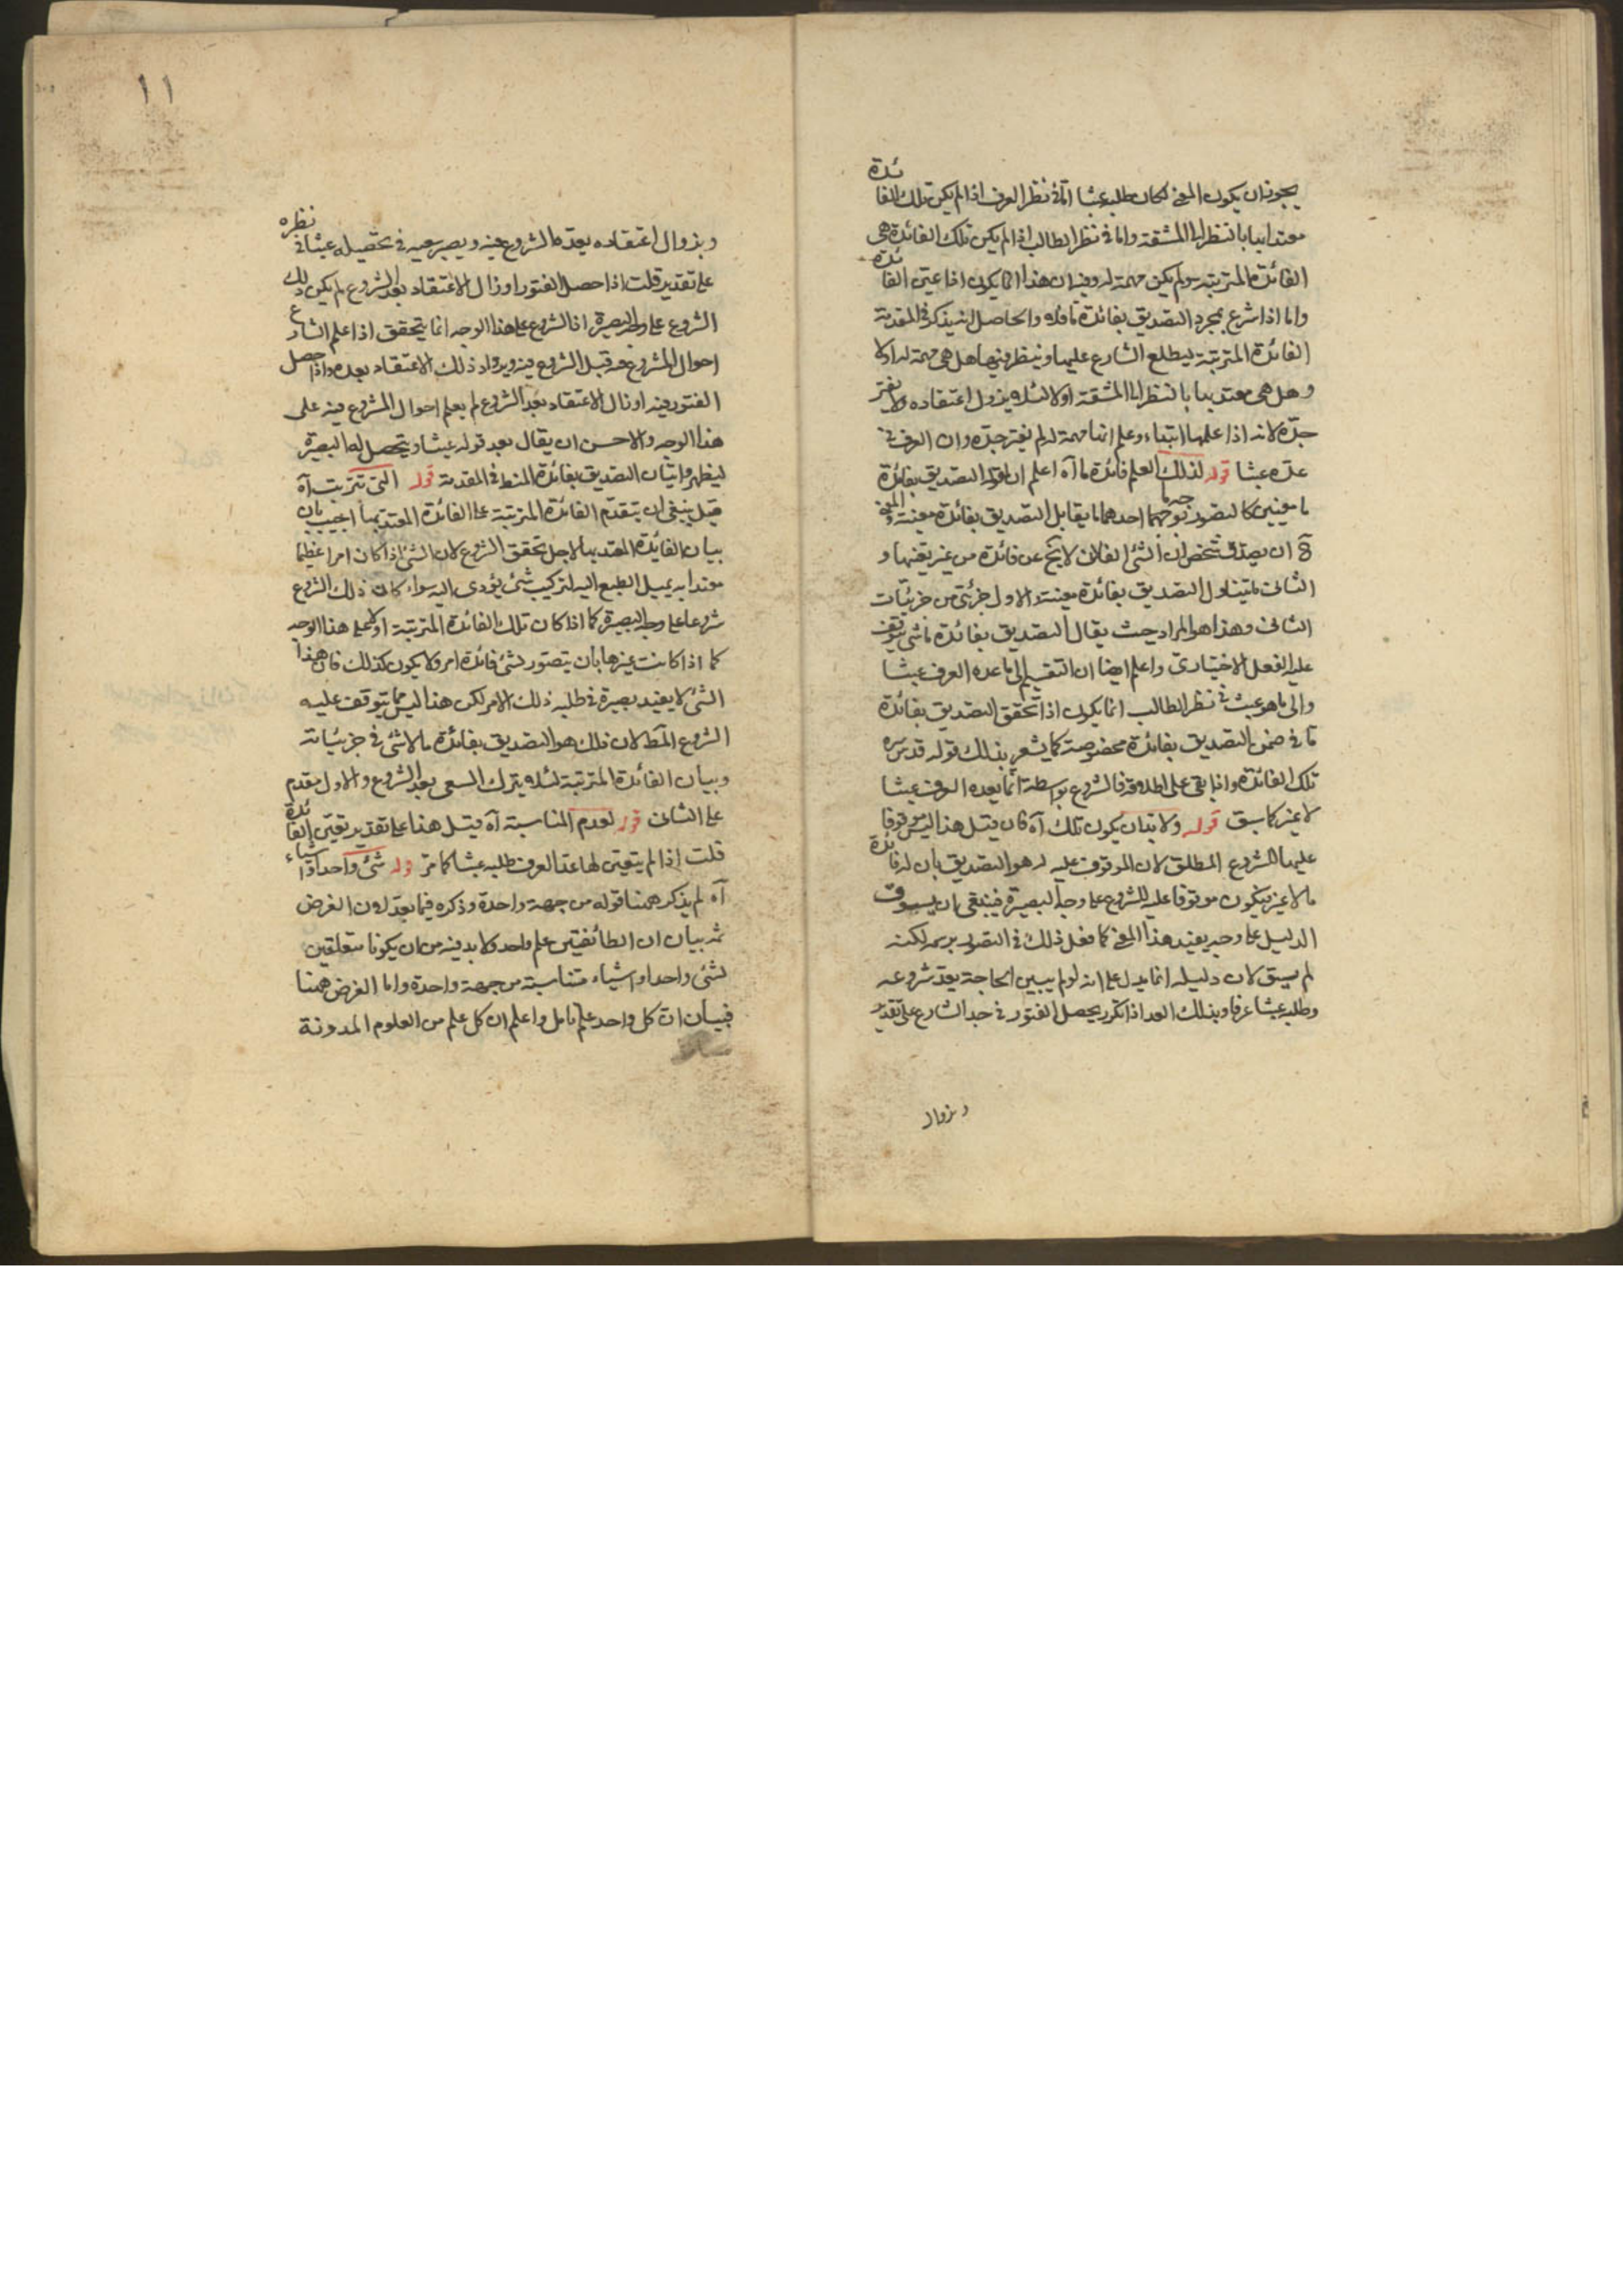 يجوز ان يكون المعنى لكان طلبه عبثا اما في نظر العرف اذا لم يكن تلك الفائدة
معتدا بها بالنظر الى المشقة واما في نظر الطالب اذا لم يكن تلك الفائدة هي
الفائدة المترتبة ولم يكن مهمة له وفيه ان هذا انما يكون اذا عين الفائدة
واما اذا شرع بمجرد التصديق بفائدة ما فلا والحاصل انه يذكر في المقدمة
الفائدة المترتبة ليطلع الشارع عليها وينظر فيها هل هي مهمة له اولا
وهل هي معتد بها بالنظر الى المشقة اولا لئلا يزول اعتقاده ولا يفتر
جده لانه اذا علمها ابتداء وعلم انها مهمة له لم يفتر جده وان العرف
عده عبثا قوله لذلك العلم فائدة ما آه اعلم ان لقوله التصديق بفائدة
ما معنيين كالتصور بوجه ما احدهما ما يقابل التصديق بفائدة معينة والمعنى
ح ان يصدق شخص ان الشئ الفلاني لا يخ عن فائدة من غير تعينها و
الثاني ما يتناول التصديق بفائدة معينة والاول جزئي من جزئيات
الثاني وهذا هو المراد حيث يقال التصديق بفائدة ما شئ يتوقف
عليه الفعل الاختياري واعلم ايضا ان التقسيم الى ما عده العرف عبثا
والى ما هو عبث في نظر الطالب انما يكون اذا تحقق التصديق بفائدة
ما في ضمن التصديق بفائدة مخصوصة كما يشعر بذلك قوله قدس سره
تلك الفائدة واذا بقي على اطلاقه فالشروع بواسطة انما يعده العرف عبثا
لا غير كما سبق قوله ولا بد ان يكون تلك آه فان قيل هذا ليس موقوفا
عليها الشروع المطلق لان الموقوف عليه له هو التصديق بان له فائدة
ما لا غير فيكون موقوفا عليه للشروع على وجه البصيرة فينبغي ان يسوق
الدليل على وجه يفيد هذا المعنى كما فعل ذلك في التصور برسمه لكنه
لم يسق لان دليله انما يدل على انه لو لم يبين الحاجة يعد شروعه
وطلبه عبثا عرفا وبذلك العد اذا تكرر يحصل الفتور في جد الشارع على تقدير
وبزوال
١١
وبزوال اعتقاده بعد الشروع فيه ويصير سعيه في تحصيله عبثا في نظره
على تقدير قلت اذا حصل الفتور او زال الاعتقاد بعد الشروع لم يكن ذلك
الشروع على وجه البصيرة اذ الشروع على هذا الوجه انما يتحقق اذا علم الشارع
احوال المشروع فيه قبل الشروع فيه ويزداد ذلك الاعتقاد بعده واذا حصل
الفتور فيه او زال الاعتقاد بعد الشروع لم يعلم احوال المشروع فيه على
هذا الوجه والاحسن ان يقال بعد قوله عبثا ويتحصل له البصيرة
ليظهر اتيان التصديق بفائدة المنط في المقدمة قوله التي تترتب آه
قيل ينبغي ان يتقدم الفائدة المترتبة على الفائدة المعتد بها اجيب بان
بيان الفائدة المعتد بها لاجل تحقق الشروع لان الشئ اذا كان امرا عظيما
معتدا به يميل الطبع اليه لتركيب شئ يؤدي اليه سواء كان ذلك الشروع
شروعا على وجه البصيرة كما اذا كان تلك الفائدة المترتبة او لا على هذا الوجه
كما اذا كانت غيرها بان يتصور لشئ فائدة امر ولا يكون كذلك فان هذا
الشئ لا يفيد بصيرة في طلبه ذلك الامر لكن هذا ليس مما يتوقف عليه
الشروع المط لان ذلك هو التصديق بفائدة ما لا شئ في جزئياته
وبيان الفائدة المترتبة لئلا يترك السعى بعد الشروع والاول مقدم
على الثاني قوله لعدم المناسبة آه قيل هذا على تقدير تعين الفائدة
قلت اذا لم يتعين لها عد العرف طلبه عبثا كما مر قوله شئ واحد او اشياء
آه لم يذكر ههنا قوله من جهة واحدة وذكره فيما بعد لان الغرض
ثمه بيان ان الطائفتين علم واحد ولا بد فيه من ان يكونا متعلقين
لشئ واحد او اشياء متناسبة من جهة واحدة واما الغرض ههنا
فبيان ان كل واحد علم تامل واعلم ان كل علم من العلوم المدونة